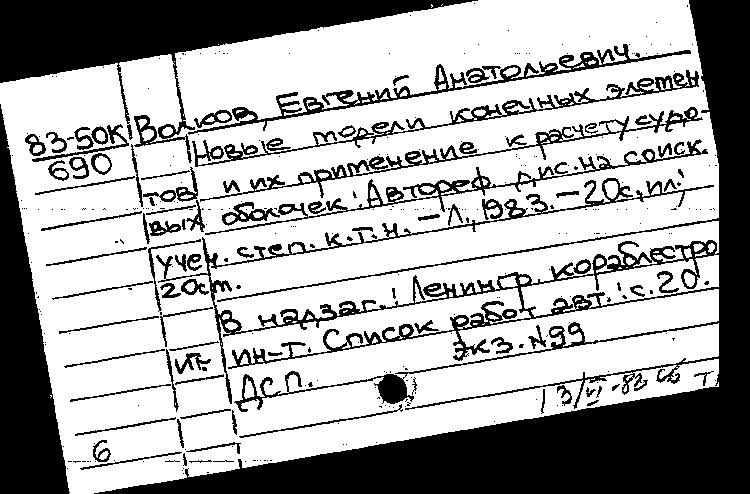 83-50К Волков, Евгений Анатольевич.
690 Новые модели конечных элемен-
тов и их применение к расчету судо-
вых оболочек: Автореф. дис. на соиск.
учен. степ. к.т.н. — Л., 1983. — 20с, ил;
20см.
В надзаг.: Ленингр. кораблестро
ит. ин-т. Список работ авт.: с. 20.
ДСП. экз. №99
13/VI-83
6